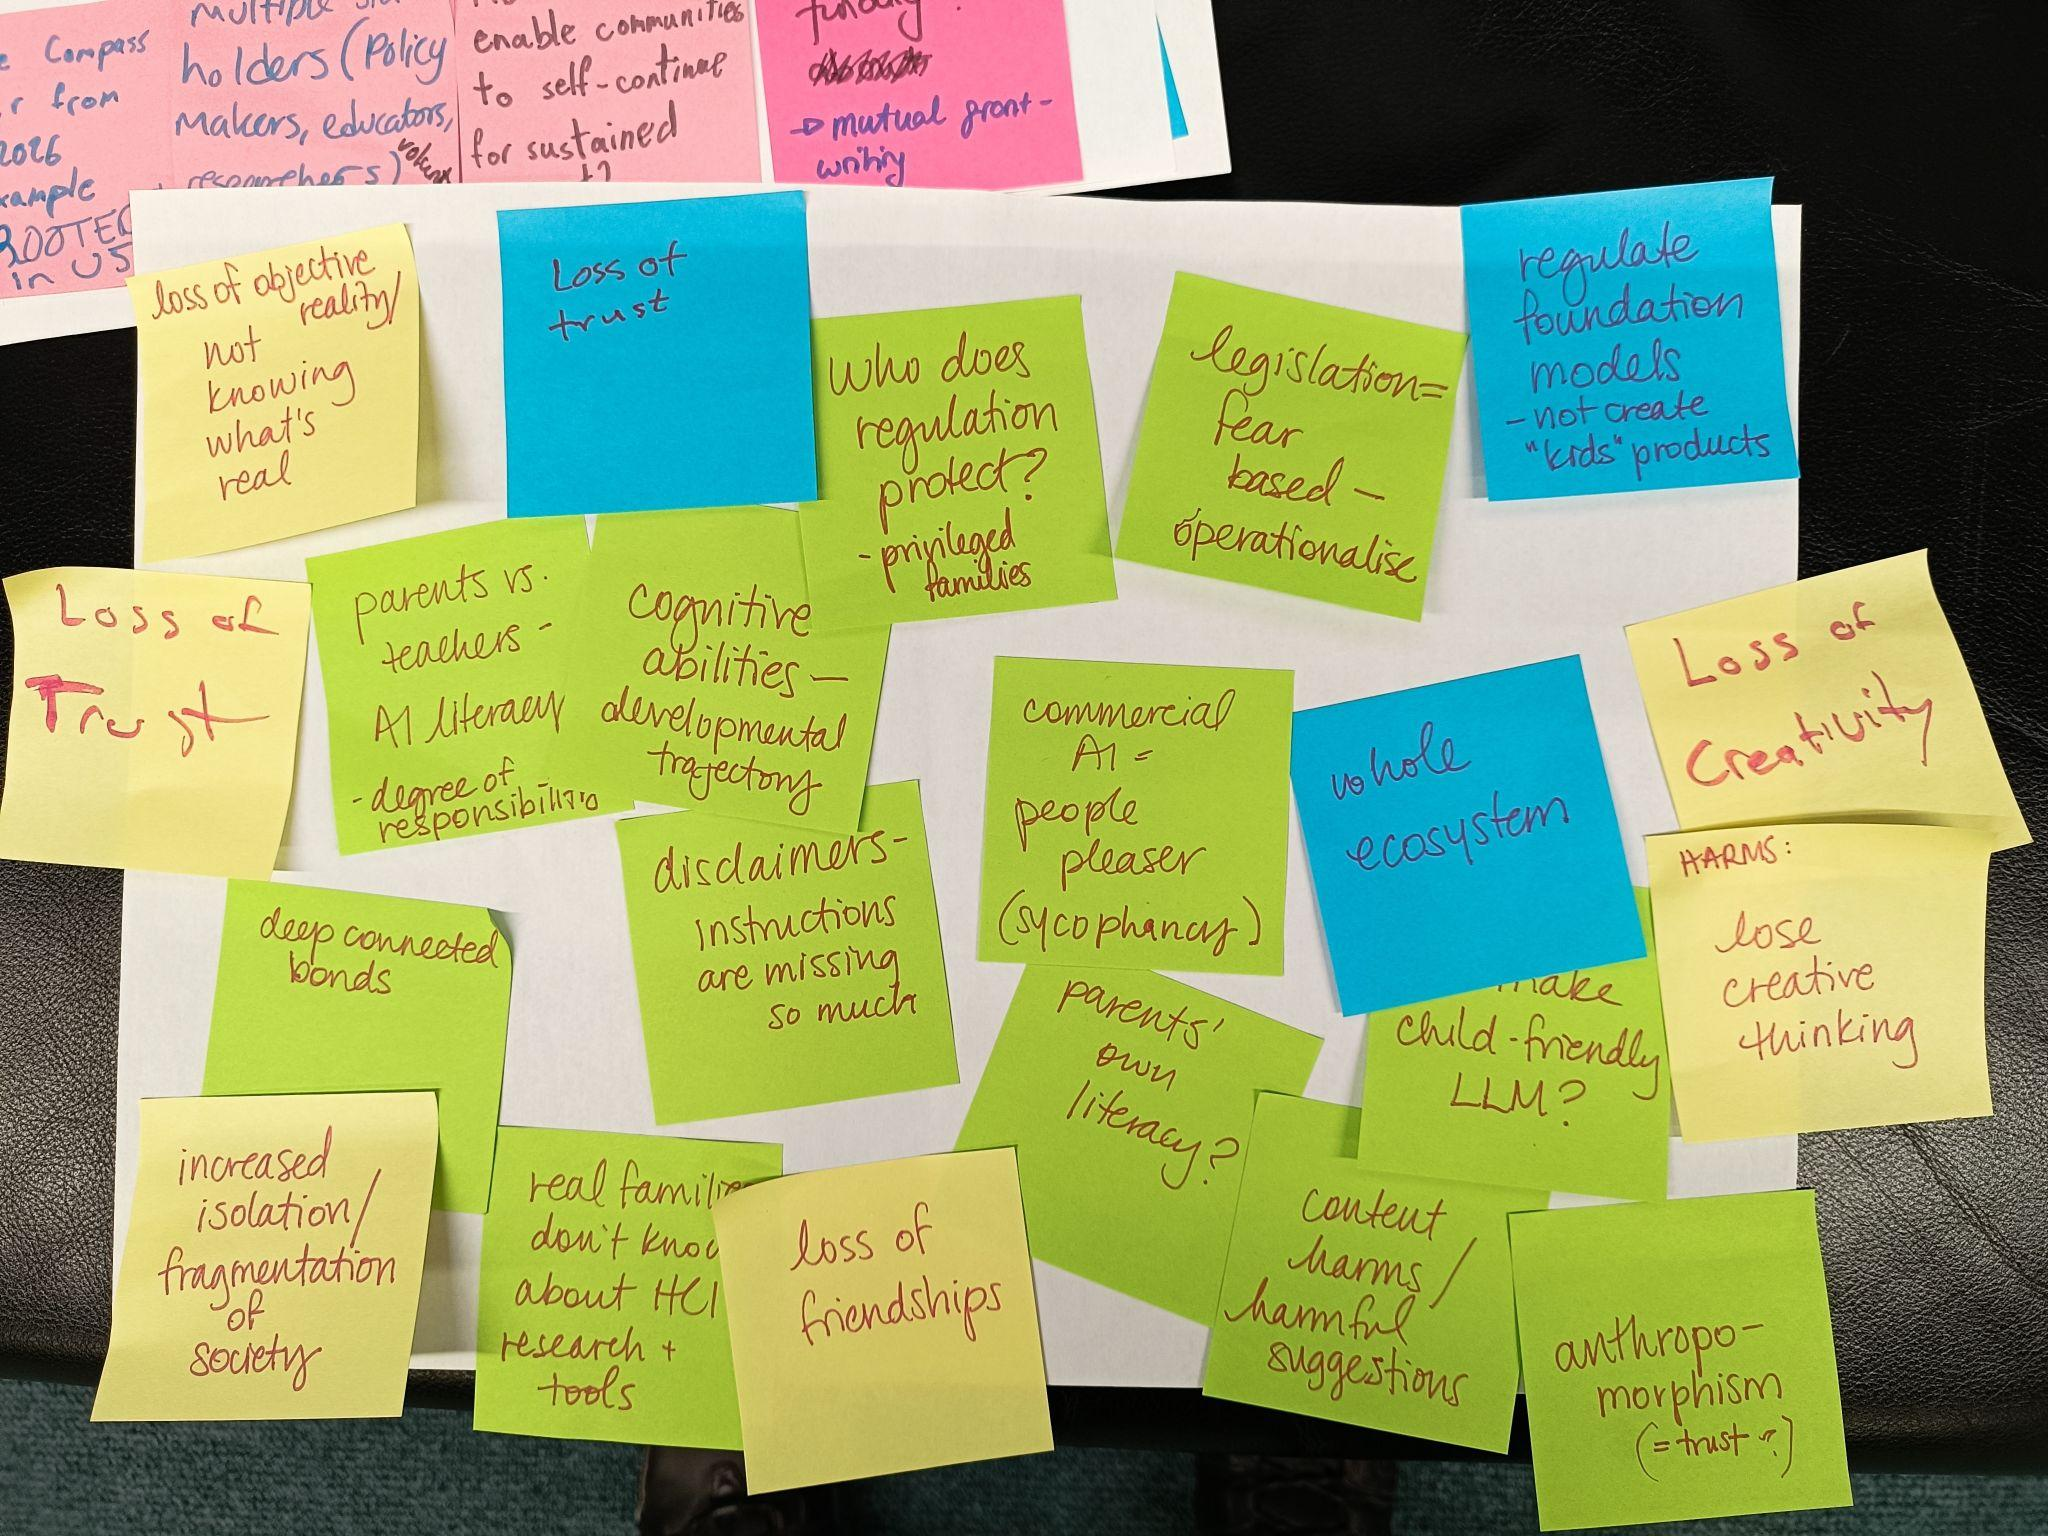 e Compass
r from
2026
xample
ROOTED
in US
holders (Policy
Makers, educators,
researchers)
enable communities
to self-continue
for sustained
→ mutual grant-
writing
loss of objective
reality/
not
knowing
what's
real
Loss of
trust
Who does
regulation
protect?
- privileged
families
legislation=
fear
based –
operationalise
regulate
foundation
models
- not create
"kids" products
Loss of
Trust
parents vs.
teachers -
AI literacy
- degree of
responsibility
cognitive
abilities –
developmental
trajectory
commercial
AI =
people
pleaser
(sycophancy)
whole
ecosystem
Loss of
Creativity
HARMS:
lose
creative
thinking
deep connected
bonds
disclaimers-
instructions
are missing
so much
parents'
own
literacy?
make
child-friendly
LLM?
increased
isolation/
fragmentation
of
society
real families
don't know
about HCI
research +
tools
loss of
friendships
content
harms/
harmful
suggestions
anthropo-
morphism
(= trust ?)